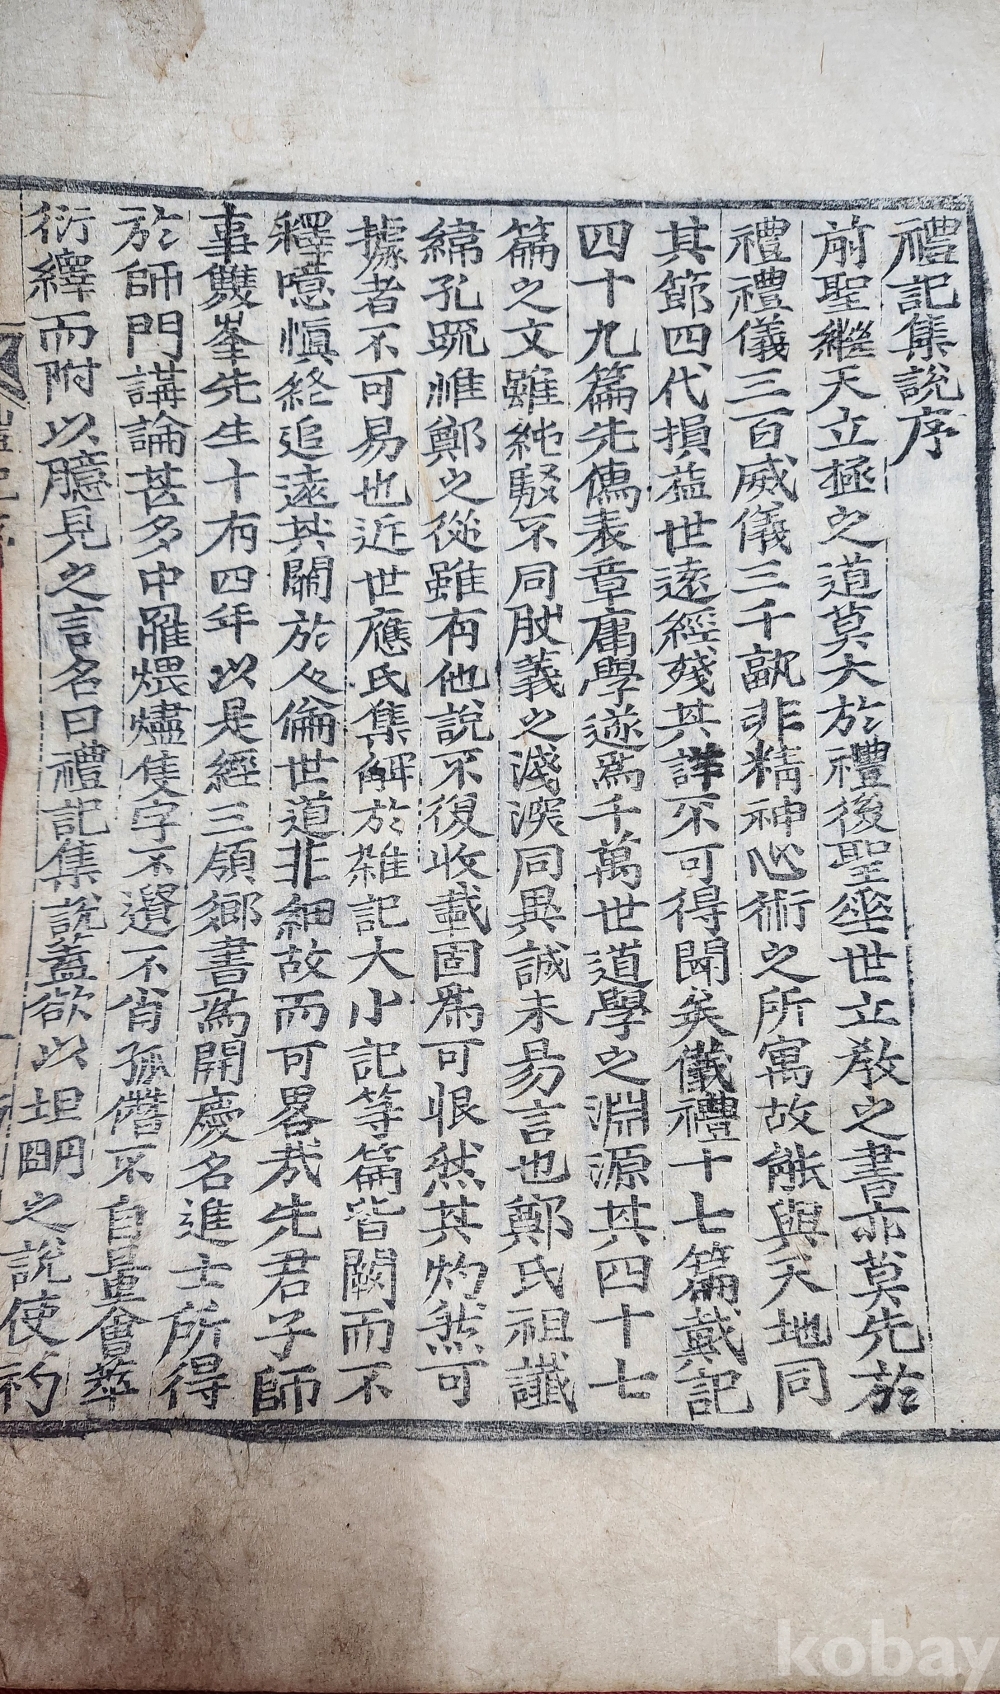 禮記集說序
前聖繼天立極之道莫大於禮後聖垂世立敎之書亦莫先於
禮禮儀三百威儀三千孰非精神心術之所寓故能與天地同
其節四代損益世遠經殘其詳不可得聞矣儀禮十七篇戴記
四十九篇先儒表章庸學遂爲千萬世道學之淵源其四十七
篇之文雖純駁不同然義之淺深同異誠未易言也鄭氏祖讖
緯孔疏惟鄭之從雖有他說不復收載固爲可恨然其灼然可
據者不可易也近世應氏集解於雜記大小記等篇皆闕而不
釋噫愼終追遠其關於人倫世道非細故而可畧哉先君子師
事雙峯先生十有四年以是經三領鄕書爲開慶名進士所得
於師門講論甚多中罹煨燼隻字不遺不肖孤僭不自量會萃
衍繹而附以臆見之言名曰禮記集說蓋欲以坦明之說使
kobay